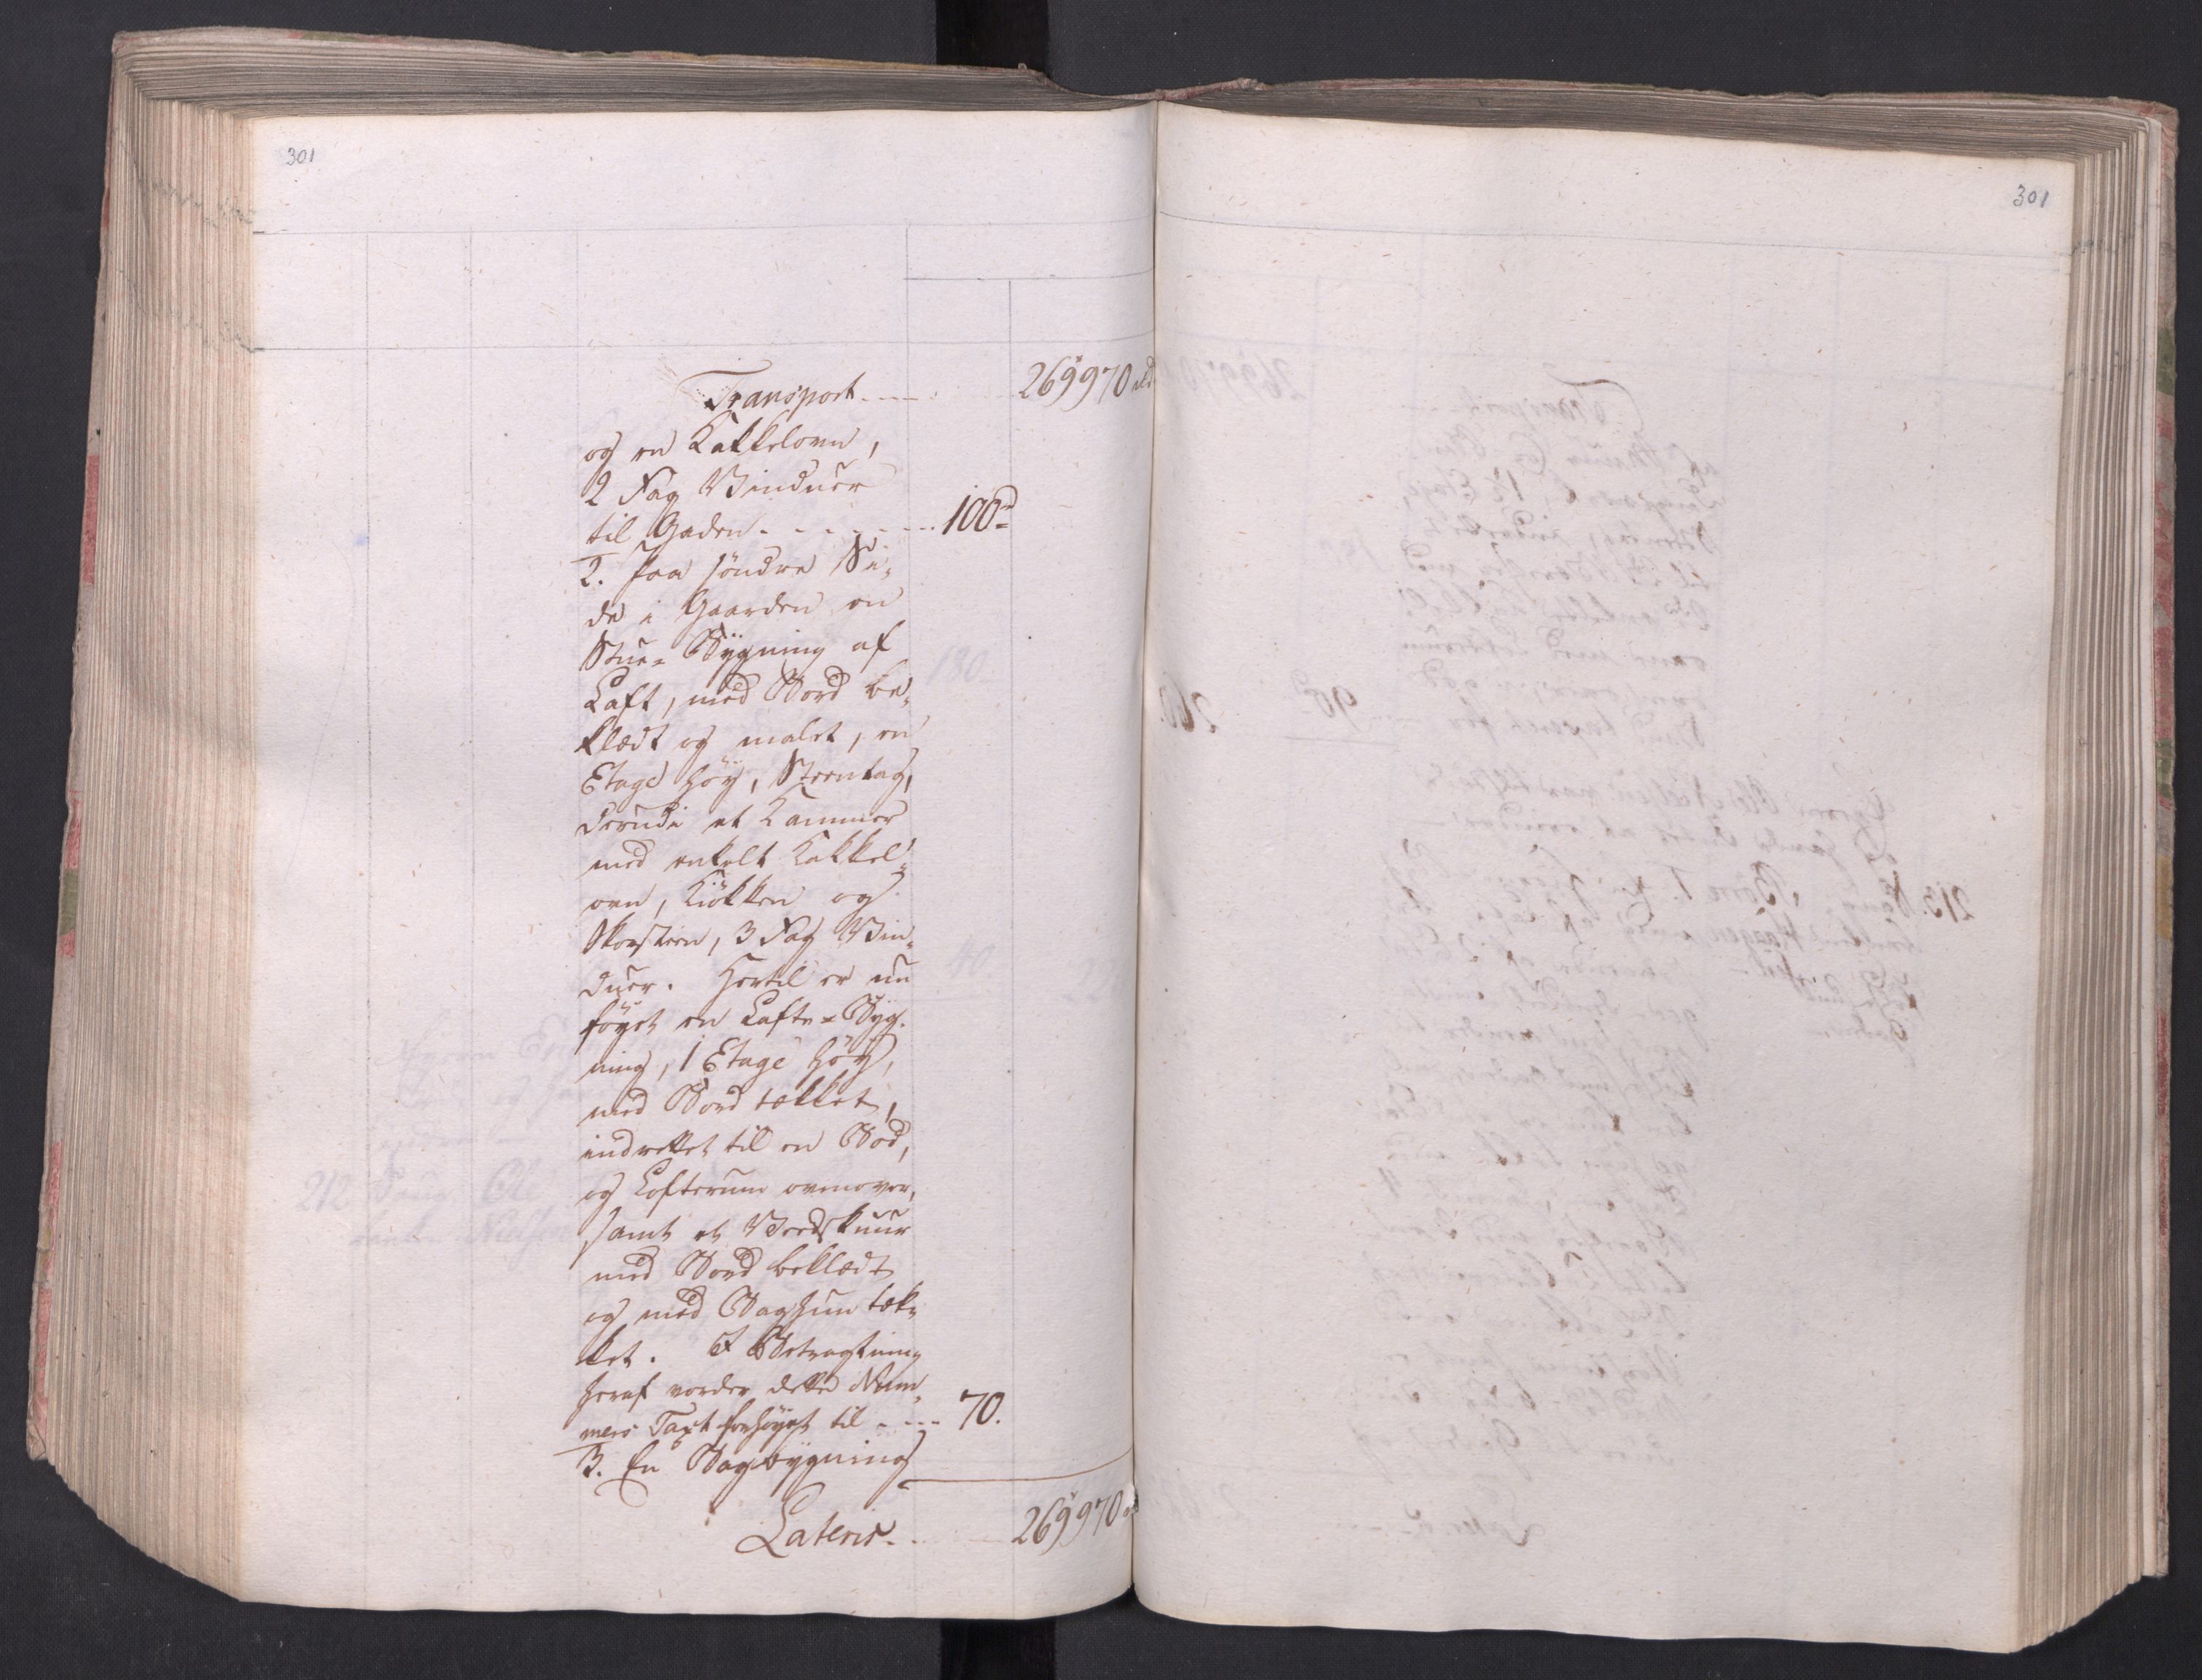 301
Transport - - - 269970 rd
og en Kakkelovn,
2 Fag Vinduer
til Gaden - - - - - - - 100 rd
2. Paa söndre Si-
de i Gaarden en
Stue-Bÿgning af
Laft, med Bord be-
klædt og malet, en
Etage höÿ, Steentag,
derudi et Kammer
med enkelt Kakkel-
ovn, Kiökken og
Skorsteen, 3 Fag Vin-
duer. Hertil er nu
föÿet en Lafte-Bÿg-
ning, 1 Etage höÿ,
med Bord tækket,
indrettet til en Bod,
og Lofterum ovenover,
samt et Vedskuur
med Bord beklædt
og med Baghun tæk-
ket. I Betragtning
heraf vorder dette Num-
mers Taxt forhöÿet til - - - 70.
3. En Bagbÿgning
Lateris - - 269970
301